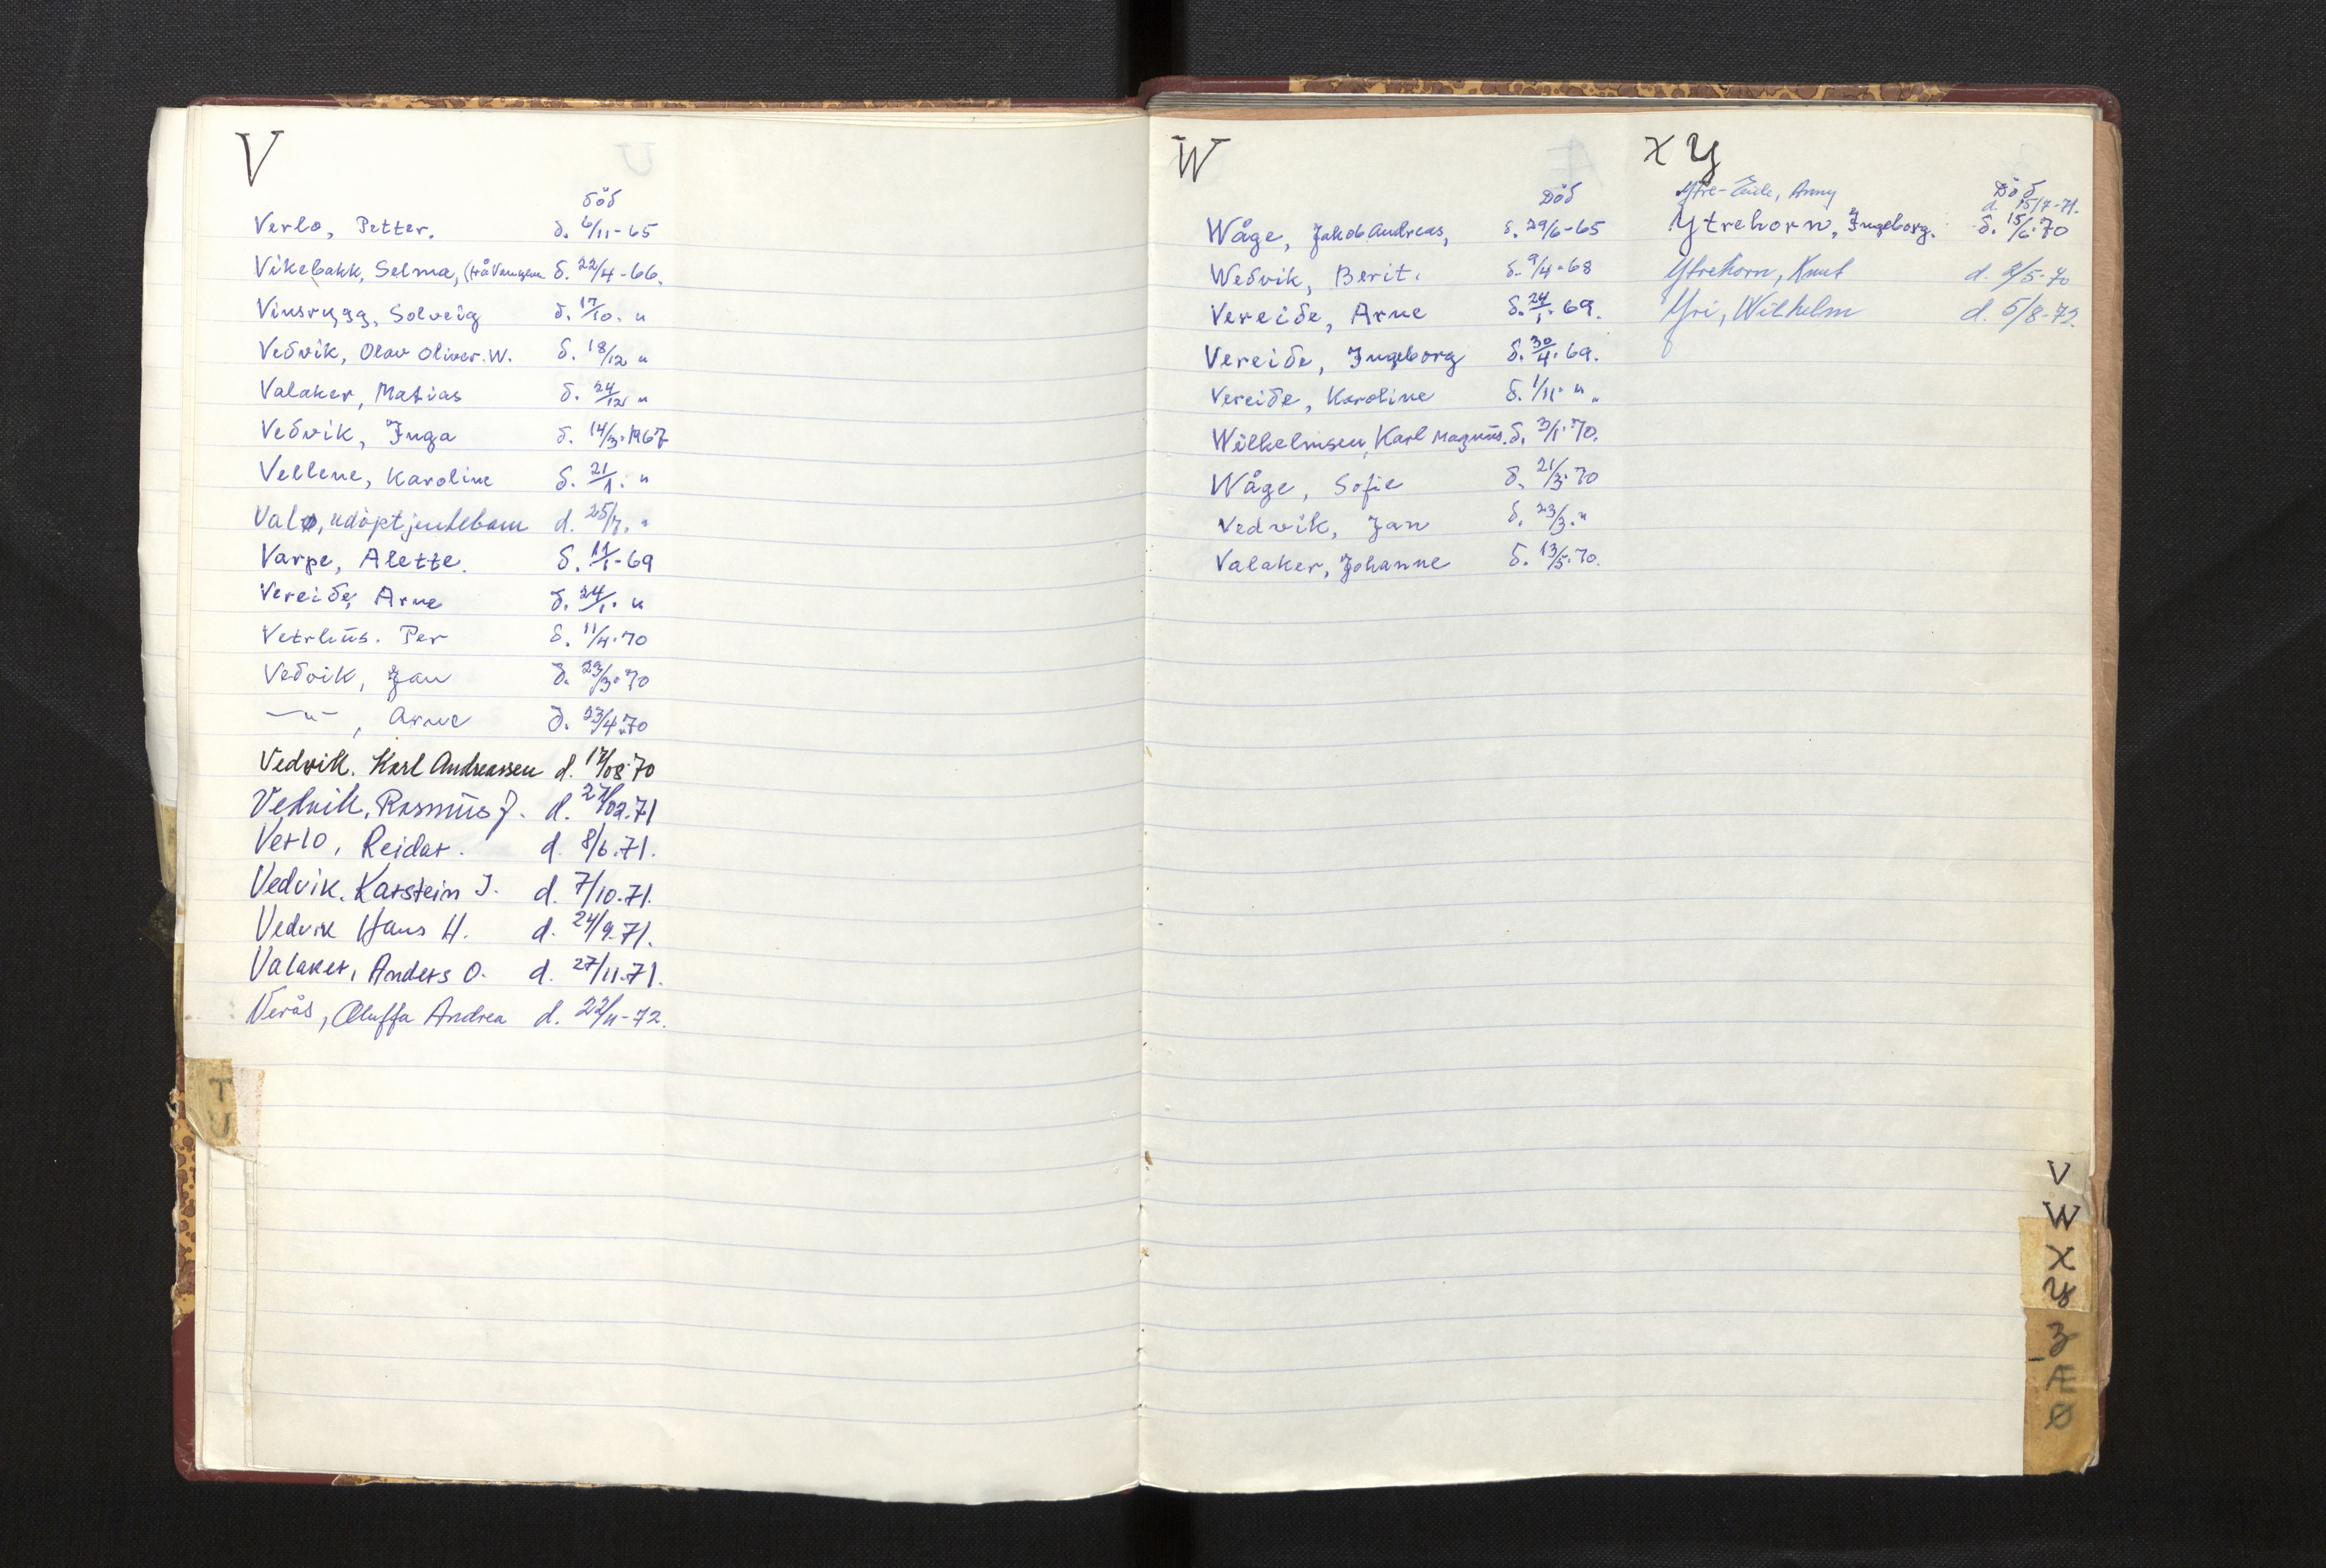 V
död
Verlo, Petter. d. 6/11-65
Vikebakk, Selma, (frå d. 22/4-66.
Vinsrygg, Solveig d. 17/10. "
Vedvik, Olav Oliver. W. d. 18/12 "
Valaker, Matias d. 24/12 "
Vedvik, Inga d. 14/3-1967
Vellene, Karoline d. 21/1. "
Valø, udöpt jentebarn d. 25/7. "
Varpe, Alette. d. 11/1-69
Vereide, Arne d. 24/1. "
Vetrhus. Per d. 11/4.70
Vedvik, Jan d. 23/3.70
—"—, Arne d. 23/4.70
Vedvik. Karl Andreassen d. 17/08.70
Vedvik. Rasmus J. d. 27/02.71
Verlo, Reidar. d. 8/6.71.
Vedvik. Karstein J. d. 7/10.71.
Vedvik Hans H. d. 24/9.71.
Valaker, Anders O. d. 27/11.71.
Verås, Oluffa Andrea d. 22/11-72.
T
U
W
Död
Wåge, Jakob Andreas, d. 29/6-65
Wedvik, Berit. d. 9/4-68
Vereide, Arne d. 24/1. 69.
Vereide, Ingeborg d. 30/4. 69.
Vereide, Karoline d. 1/11. "
Wilhelmsen, Karl Magnus. d. 3/1.70.
Wåge, Sofie d. 21/3.70
Vedvik, Jan d. 23/3. "
Valaker, Johanne d. 13/5.70.
X Y
Död
Ytre-Eide, Anny d. 15/7-71.
Ytrehorn, Ingeborg. d. 15/6.70
Ytrehorn, Knut d. 2/5-70
Yri, Wilhelm d. 5/8-72.
V
W
X
Y
Z
Æ
Ø